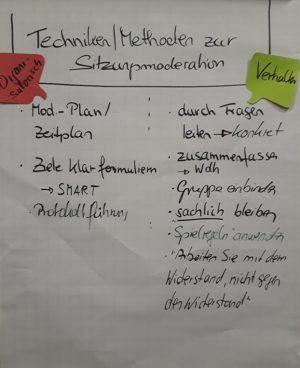 Techniken/Methoden zur
Sitzungsmoderation
Organi-
satorisch
Verhalten
Mod.-Plan/
Zeitplan
Ziele klar formulieren
→ SMART
Protokollführung
durch Fragen
leiten → konkret
zusammenfassen
→ Wdh
Gruppe einbinden
sachlich bleiben
"Spielregeln" anwenden
"Arbeiten Sie mit dem
Widerstand, nicht gegen
den Widerstand"